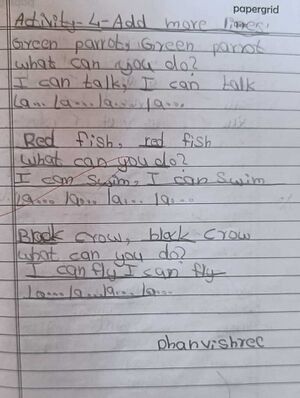 papergrid
Activity-4-Add more lines:
Green parrot, Green parrot
what can you do?
I can talk, I can talk
la... la... la... la...
Red fish, red fish
what can you do?
I can swim, I can swim
la... la... la... la...
Black crow, black crow
what can you do?
I can fly I can fly
la... la... la... la...
Dhanvishree